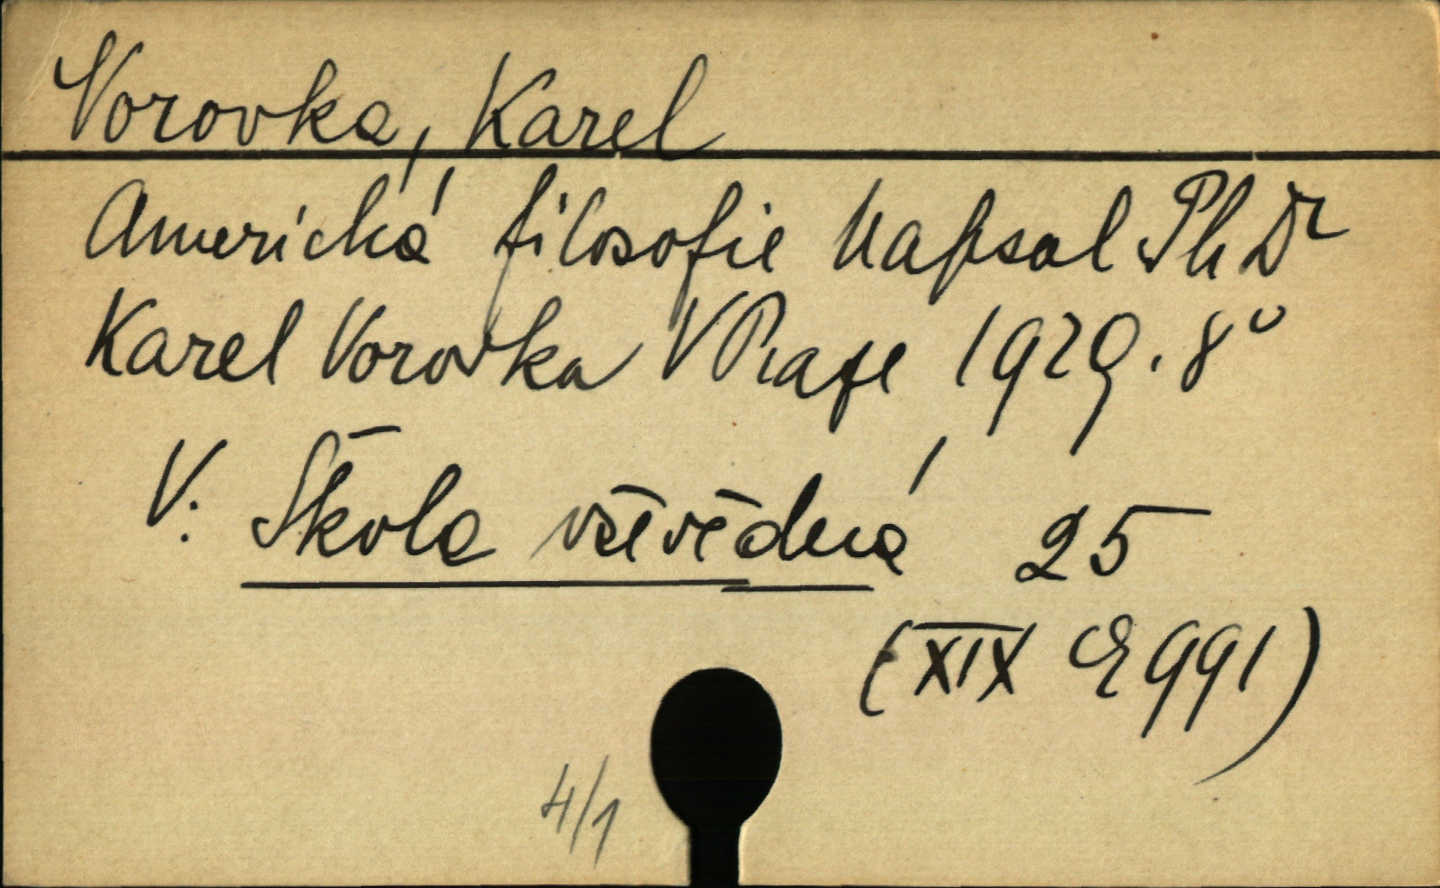 Vorovka, Karel
Americká filosofie Napsal PhDr
Karel Vorovka V Praze 1929. 8°
V. Škola vševědná 25
(XIX E 991)
4/1